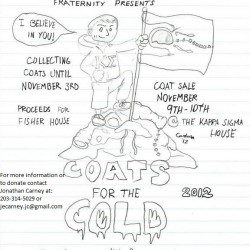 FRATERNITY PRESENTS
I BELIEVE
IN YOU!
COLLECTING
COATS UNTIL
NOVEMBER 3RD
PROCEEDS FOR
FISHER HOUSE
COAT SALE
NOVEMBER
9TH-10TH
@ THE KAPPA SIGMA
HOUSE
For more information or
to donate contact
Jonathan Carney at:
203-314-5029 or
jecarney.jc@gmail.com
COATS
FOR THE
2012
COLD